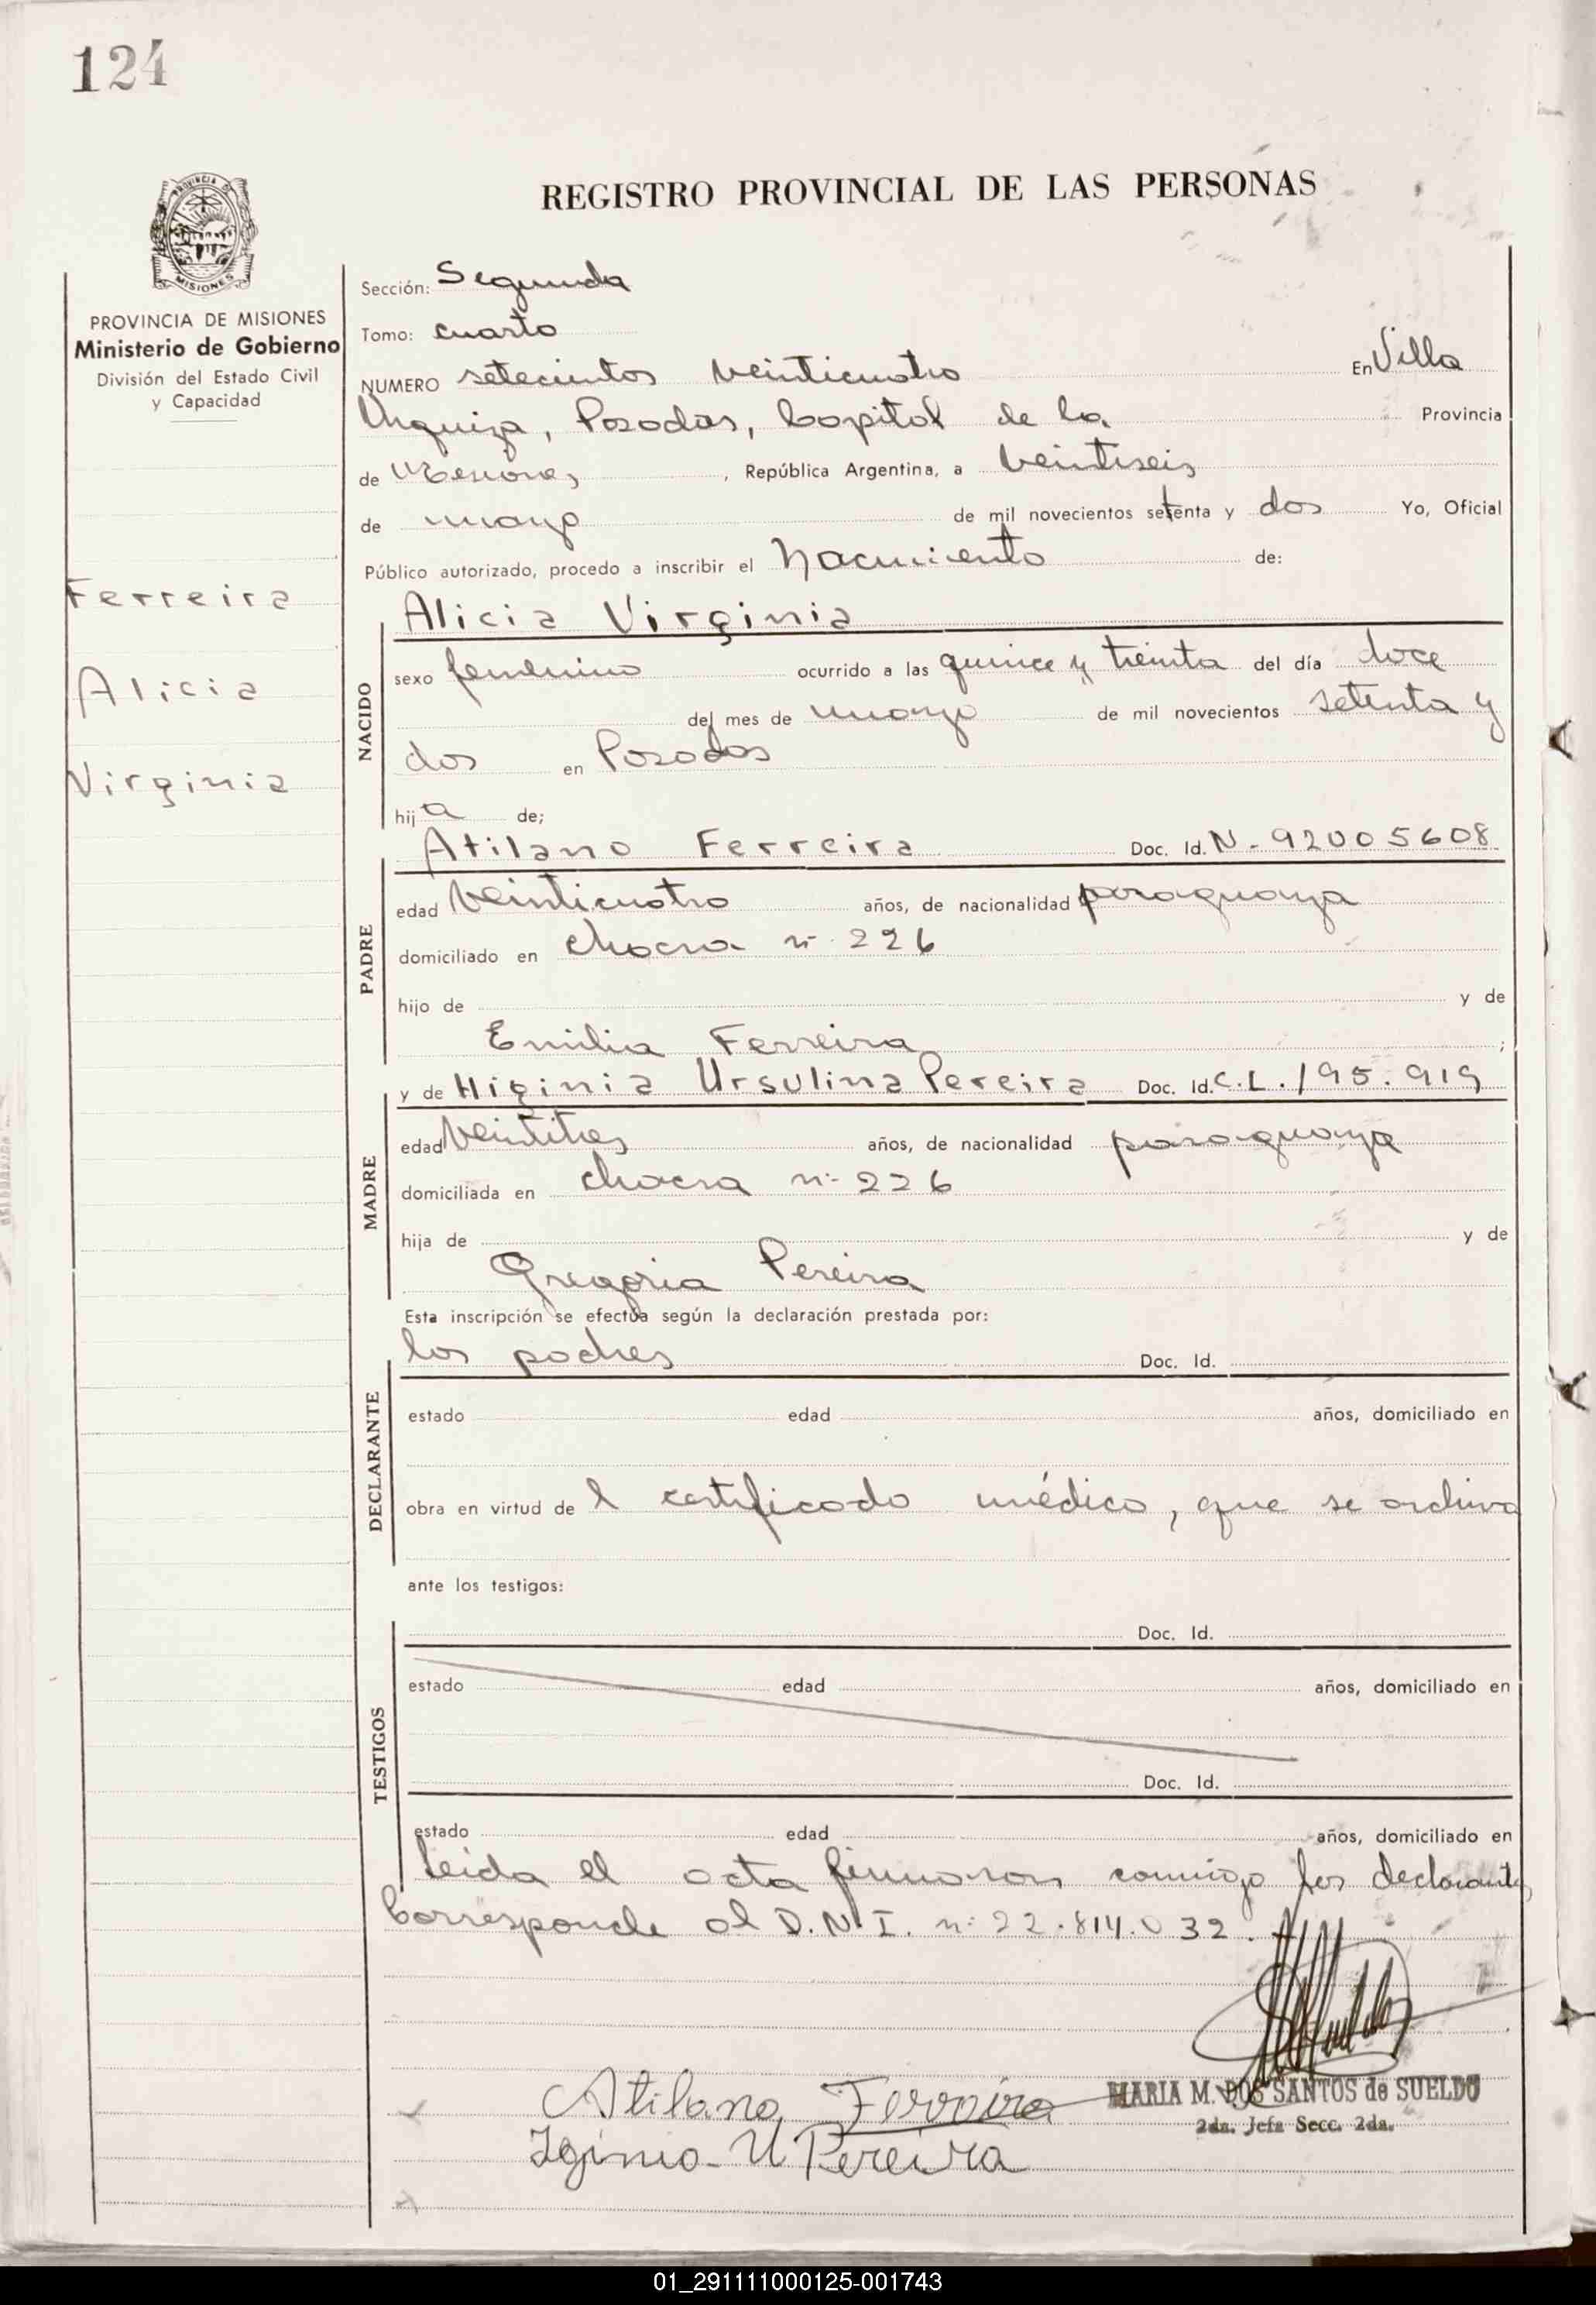 124
REGISTRO PROVINCIAL DE LAS PERSONAS
PROVINCIA DE MISIONES
PROVINCIA DE MISIONES
Ministerio de Gobierno
División del Estado Civil
y Capacidad
Ferreira
Alicia
Virginia
Sección: Segunda
Tomo: cuarto
NUMERO setecientos veinticuatro En Villa
Urquiza, Posadas, Capital de la Provincia
de Misiones, República Argentina, a veintiseis
de mayo de mil novecientos setenta y dos Yo, Oficial
Público autorizado, procedo a inscribir el Nacimiento de:
NACIDO
Alicia Virginia
sexo femenino ocurrido a las quince y treinta del día doce
del mes de mayo de mil novecientos setenta y
dos en Posadas
hija de;
PADRE
Atilano Ferreira Doc. Id. N- 92005608
edad veinticuatro años, de nacionalidad paraguaya
domiciliado en chacra nº 226
hijo de y de
Emilia Ferreira ;
MADRE
y de Higinia Ursulina Pereira Doc. Id. C.L. 195.919
edad veintitres años, de nacionalidad paraguaya
domiciliada en chacra nº 226
hija de y de
Gregoria Pereira
Esta inscripción se efectúa según la declaración prestada por:
DECLARANTE
los padres Doc. Id.
estado edad años, domiciliado en
obra en virtud de l certificado médico, que se archiva
ante los testigos:
TESTIGOS
Doc. Id.
estado edad años, domiciliado en
Doc. Id.
estado edad años, domiciliado en
leida el acta firmaron conmigo los declarantes
Corresponde al D.N.I. nº 22.814.032.
Atilano Ferreira
MARIA M. DOS SANTOS de SUELDO
2da. Jefa Secc. 2da.
Iginia U Pereira
01_291111000125-001743